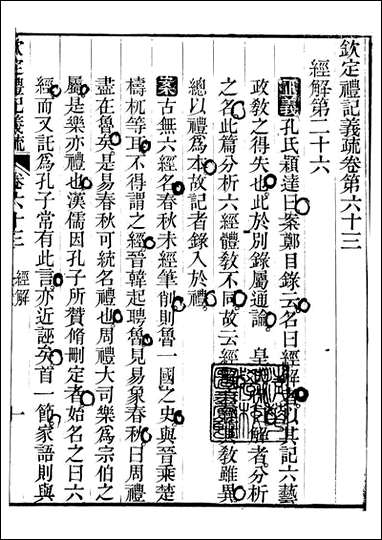 欽定禮記義疏卷第六十三
經解第二十六
正義孔氏穎達曰案鄭目錄云名曰經解者以其記六藝
政教之得失也此於別錄屬通論 皇解者分析
之名此篇分析六經體教不同故云經教雖異
總以禮爲本故記者錄入於禮
案古無六經名春秋未經筆削則魯一國之史與晉乘楚
檮杌等耳不得謂之經晉韓起聘魯見易象春秋曰周禮
盡在魯矣是易春秋可統名禮也周禮大司樂爲宗伯之
屬是樂亦禮也漢儒因孔子所贊脩刪定者始名之曰六
經而又託爲孔子常有此言亦近誣矣首一節家語則與
欽定禮記義疏
卷六十三
經解
一